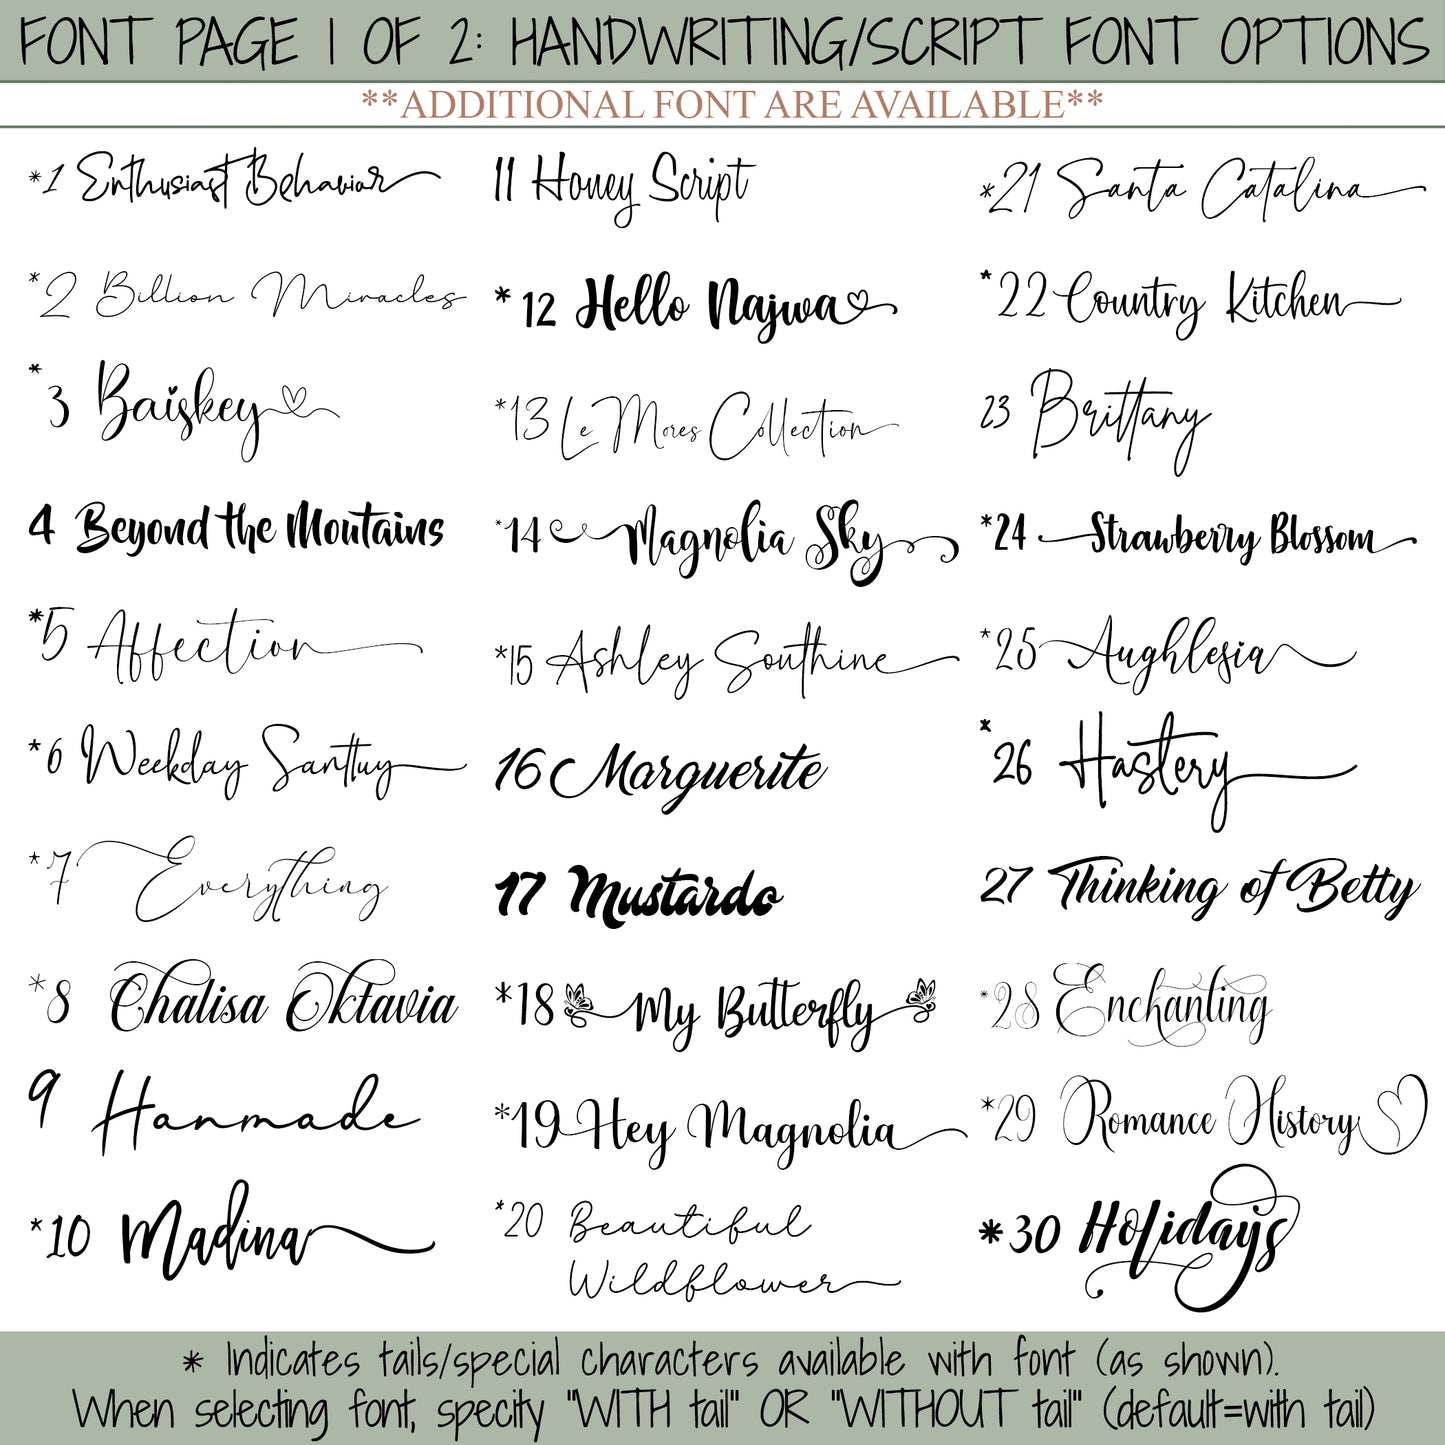 FONT PAGE 1 OF 2: HANDWRITING/SCRIPT FONT OPTIONS
**ADDITIONAL FONT ARE AVAILABLE**
*1 Enthusiast Behavior
*2 Billion Miracles
*3 Baiskey
4 Beyond the Moutains
*5 Affection
*6 Weekday Santtuy
*7 Everything
*8 Chalisa Oktavia
9 Hanmade
*10 Madina
11 Honey Script
*12 Hello Najwa
*13 Le Mores Collection
*14 Magnolia Sky
*15 Ashley Southine
16 Marguerite
17 Mustardo
*18 My Butterfly
*19 Hey Magnolia
*20 Beautiful
Wildflower
*21 Santa Catalina
*22 Country Kitchen
23 Brittany
*24 Strawberry Blossom
*25 Aughlesia
*26 Hastery
27 Thinking of Betty
*28 Enchanting
*29 Romance History
*30 Holidays
* Indicates tails/special characters available with font (as shown).
When selecting font, specify "WITH tail" OR "WITHOUT tail" (default=with tail)